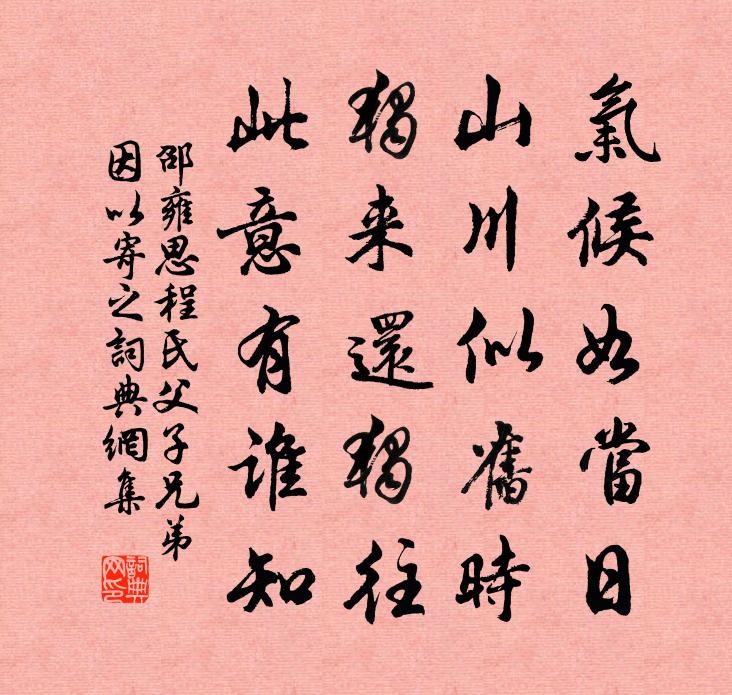 氣候如當日
山川似舊時
獨来還獨往
此意有誰知
邵雍思程氏父子兄弟
因以寄之詞典網集
詞典
网印